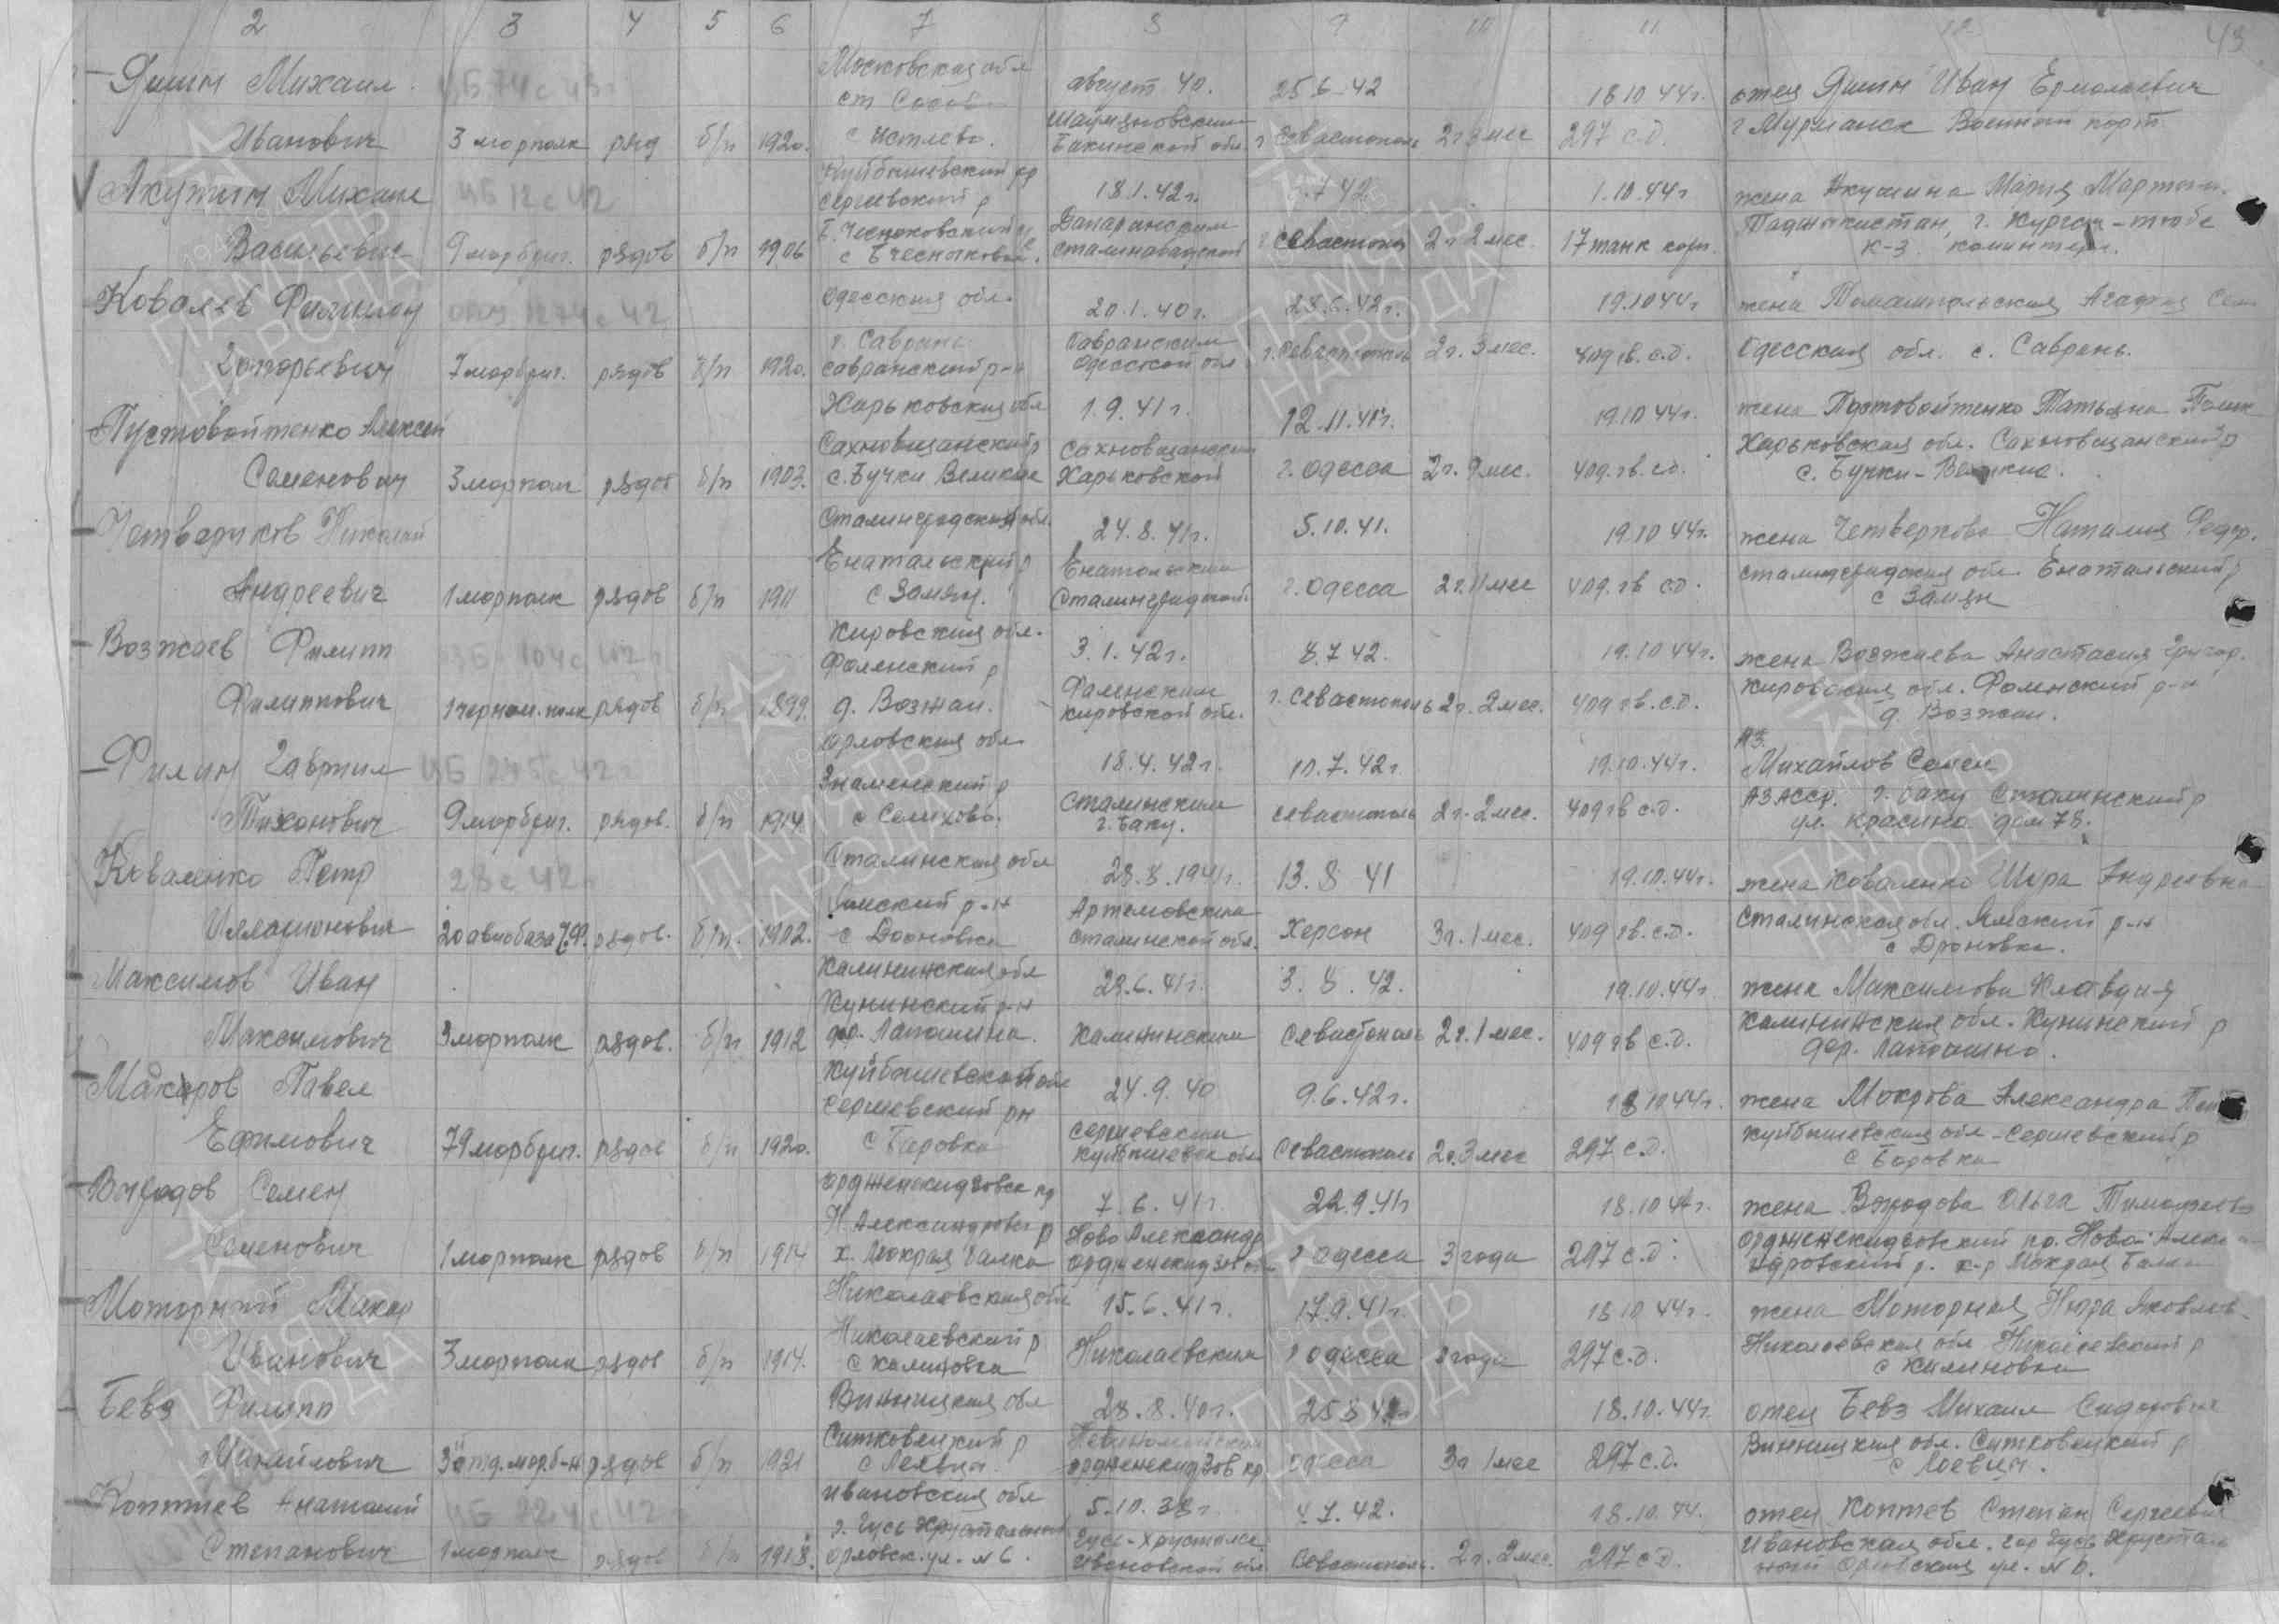 2 3 4 5 6 7 8 9 10 11 12 43
Яшин Михаил Московская обл август 40. 25.6.42 18.10.44г. отец Яшин Иван Ермолаевич
Иванович 3 морполк ряд б/п 1920. с Истлево. Бакинской обл. г Севастополь 2г 3 мес 297 с.д. г Мурманск Военный порт
Акутин Михаил ЦБ 12 с 42 Куйбышевский кр Сергиевский р 18.1.42г. 7.42 1.10.44г жена Акушина Мария
Васильевич 9 морбриг. рядов б/п 1906 Сталинабадской г Севастополь 2г 2 мес. 17 танк корп. Таджикистан, г. Курган-тюбе
к-з коминтерн.
Ковалев Филимон Одесская обл. 20.1.40г. 28.6.42г. 19.10.44г жена Томашпольская Агафия
7 морбриг. рядов б/п 1920. г. Саврань савранский р-н Савранским Одесской обл г. Севастополь 2г. 3 мес. 409 гв. с.д. Одесская обл. с. Саврань.
Пустовойтенко Алексей Харьковская обл 1.9.41г. 12.11.41г. 19.10.44г. жена Пустовойтенко Татьяна
Семенович 3 морполк рядов б/п 1903. Сахновщанский р с. Бучки Великие Сахновщанским Харьковской г. Одесса 2г. 9 мес. 409. гв. с.д. Харьковская обл. Сахновщанский р
с. Бучки-Великие.
Четвериков Николай Сталинградской обл. 24.8.41г. 5.10.41. 19.10.44г. жена Четверкова Наталия Федор.
Андреевич 1 морполк рядов б/п 1911 Енатаевский р с Замян. Сталинградской г. Одесса 2г. 11 мес 409. гв с.д. сталинградская обл. Енатаевский р
с Замян
Возжаев Филипп ЦБ 104 с 42 г Кировская обл. Фаленский р 3.1.42г. 8.7.42. 19.10.44г. жена Возжаева Анастасия Григор.
Филиппович рядов б/п 1899. д. Возжаи. Фаленским кировской обл. г. Севастополь 2г. 2 мес. 409 гв. с.д. Кировская обл. Фаленский р-н
д. Возжаи.
Филин Гаврил ЦБ 245 с 42 г Орловская обл 18.4.42г. 10.7.42г. 19.10.44г. Михайлов Семен
Тиханович 9 морбриг. рядов. б/п 1914. Знаменский р с Селихово. Сталинским г. Баку. Севастополь 2г. 2 мес. 409 гв с.д. АзАССР. г. Баку Сталинский р
ул. Красина дом 78.
Коваленко Петр 28 с 42 г Сталинская обл 28.8.1941г. 13.8.41 19.10.44г. жена Коваленко Шура Андреевна
Илларионович 20 автобаза Ч.Ф. рядов. б/п. 1902. с Дроновка Артемовским сталинской обл. Херсон 3г. 1 мес. 409 гв. с.д. Сталинская обл. Ямский р-н
с Дроновка.
Максимов Иван Калининская обл 29.6.41г. 3.8.42. 19.10.44г жена Максимова Клавдия
Максимович 3 морполк рядов. б/п 1912 Кунинский р-н дер. Лапошина. Калининским Севастополь 2г. 1 мес. 409 гв с.д. Калининская обл. Кунинский р
дер. Лапошино.
Макаров Павел Куйбышевской обл 24.9.40 9.6.42г. 18.10.44г. жена Мокрова Александра
Ефимович 79 морбриг. рядов б/п 1920. Сергиевский рн с Боровка Сергиевским Севастополь 2г. 3 мес 297 с.д. Куйбышевская обл - Сергиевский р
с Боровка
Семен 7.6.41г. 22.9.41г 18.10.44г. жена Ольга Тимофеев
Семенович 1 морполк рядов б/п 1914 Н Александровск р х. Мокрая Балка Ново Александр г Одесса 3 года 297 с.д. Орджоникидзовский кр. Ново-Алекса-
ндровский р. х-р Мокрая Балка
Моторный Макар Николаевская обл 15.6.41г. 17.9.41г. 18.10.44г. жена Моторная Нюра Яковлев.
Иванович 3 морполк рядов б/п 1914. Николаевский р с Калиновка Николаевским г Одесса 3 года 297 с.д. Николаевская обл Николаевский р
с Калиновка
Бевз Филипп Винницкая обл 28.8.40г. 18.10.44г. отец Бевз Михаил Сидорович
Михайлович 3 отд. мор. б-н рядов б/п 1921 Ситковецкий р орджоникидзов кр. Одесса 3г 1 мес 297 с.д. Винницкая обл. Ситковецкий р
Коптев Анатолий Ивановская обл 5.10.38г 4.7.42. 18.10.44. отец Коптев Степан Сергеевич
Степанович 1 морполк рядов б/п 1918. г. Гусь Хрустальный орловск. ул. N 6. Гусь-Хрустальн. Ивановской обл Севастополь. 2г. 2 мес. 297 с.д. Ивановская обл. гор Гусь Хрусталь
ный Орловская ул. N 6.
ПАМЯТЬ НАРОДА